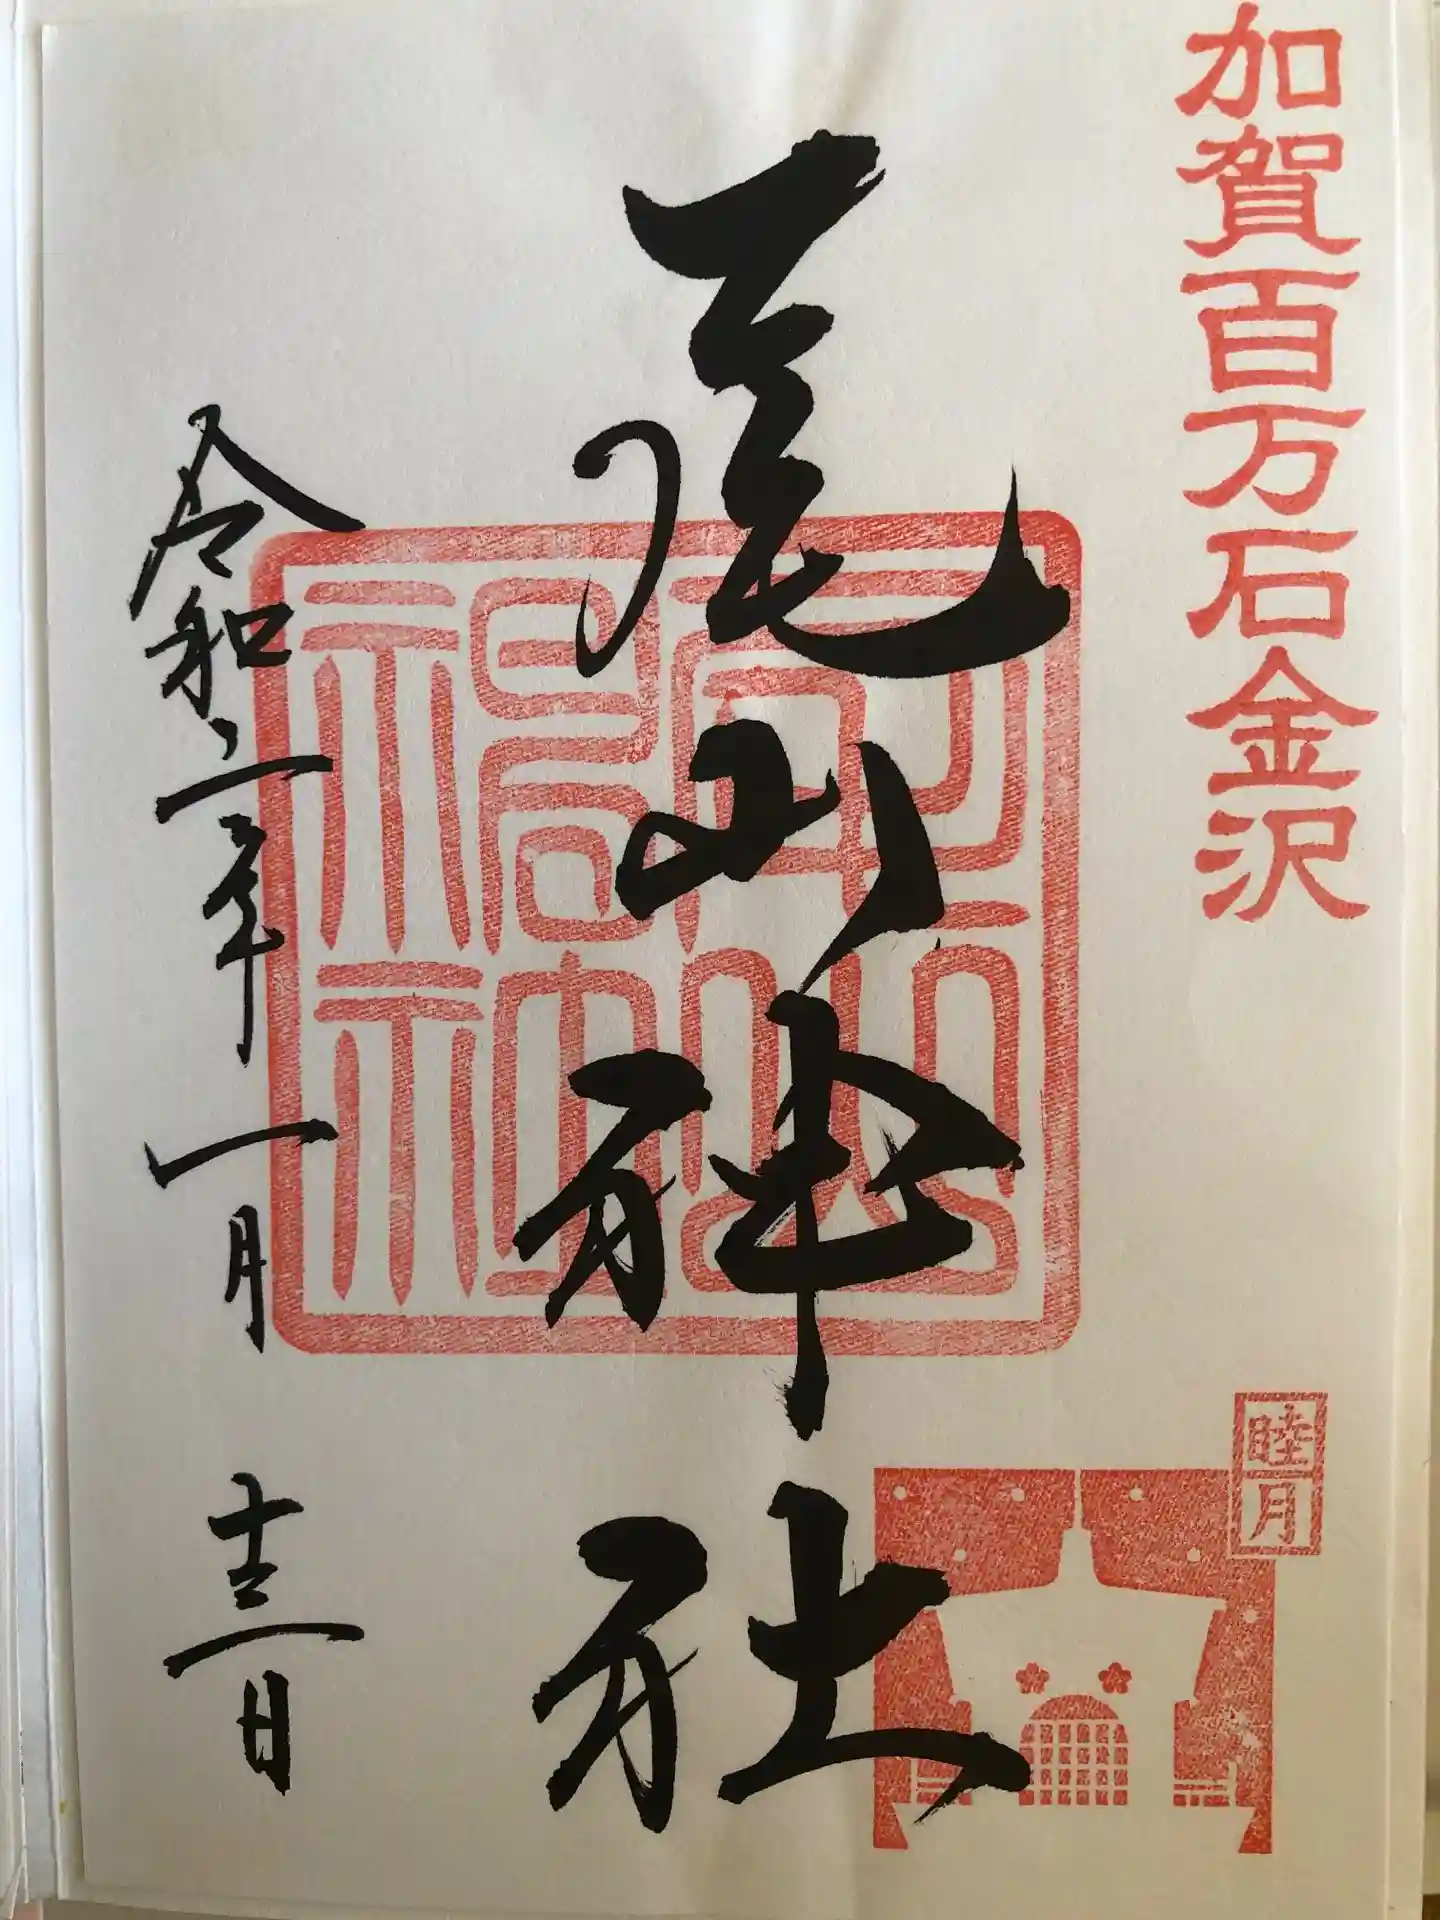 加賀百万石金沢
睦月
尾山神社
令和二年一月十三日